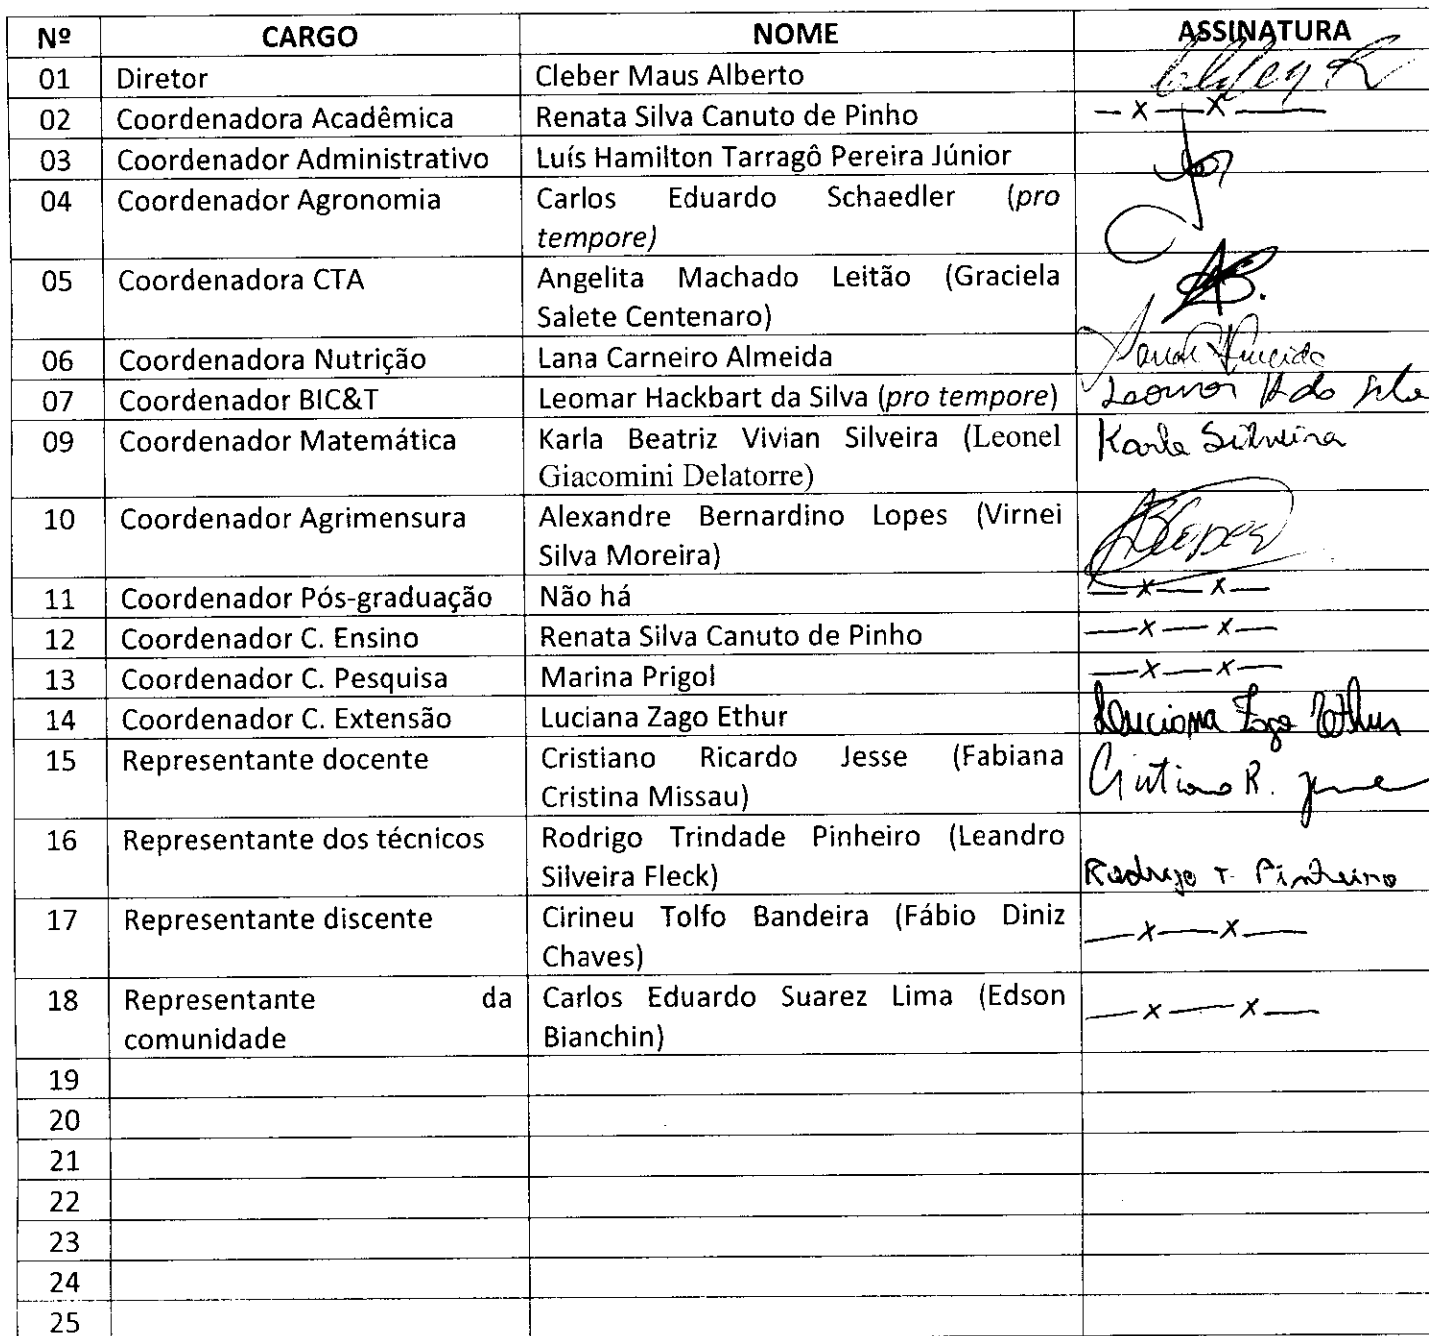 Nº CARGO NOME ASSINATURA
01 Diretor Cleber Maus Alberto
02 Coordenadora Acadêmica Renata Silva Canuto de Pinho — x — x —
03 Coordenador Administrativo Luís Hamilton Tarragô Pereira Júnior
04 Coordenador Agronomia Carlos Eduardo Schaedler (pro
tempore)
05 Coordenadora CTA Angelita Machado Leitão (Graciela
Salete Centenaro)
06 Coordenadora Nutrição Lana Carneiro Almeida
07 Coordenador BIC&T Leomar Hackbart da Silva (pro tempore)
09 Coordenador Matemática Karla Beatriz Vivian Silveira (Leonel Karla Silveira
Giacomini Delatorre)
10 Coordenador Agrimensura Alexandre Bernardino Lopes (Virnei
Silva Moreira)
11 Coordenador Pós-graduação Não há — x — x —
12 Coordenador C. Ensino Renata Silva Canuto de Pinho — x — x —
13 Coordenador C. Pesquisa Marina Prigol — x — x —
14 Coordenador C. Extensão Luciana Zago Ethur Luciana Zago Ethur
15 Representante docente Cristiano Ricardo Jesse (Fabiana Cristiano R. Jesse
Cristina Missau)
16 Representante dos técnicos Rodrigo Trindade Pinheiro (Leandro
Silveira Fleck) Rodrigo T. Pinheiro
17 Representante discente Cirineu Tolfo Bandeira (Fábio Diniz — x — x —
Chaves)
18 Representante da Carlos Eduardo Suarez Lima (Edson — x — x —
comunidade Bianchin)
19
20
21
22
23
24
25